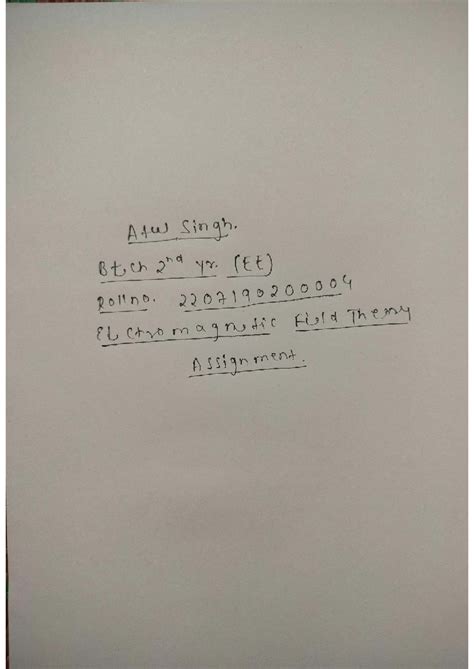 Atul Singh.
Btech 2nd yr. (EE)
Rollno. 2207190200004
Electromagnetic Field Theory
Assignment.